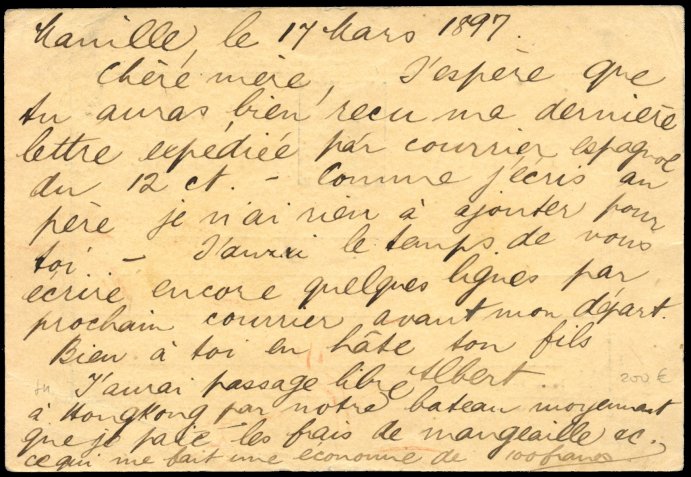 Manille, le 17 Mars 1897.
Chère mère, J'espère que
tu auras bien reçu ma dernière
lettre expédiée par courrier espagnol
du 12 ct. - Comme j'écris au
père je n'ai rien à ajouter pour
toi - J'aurai le temps de vous
écrire encore quelques lignes par
prochain courrier avant mon départ.
Bien à toi en hâte ton fils
Albert
J'aurai passage libre
à Hongkong par notre bateau moyennant
que je paie les frais de mangeaille &c.,
ce qui me fait une économie de 100 francs
200 €